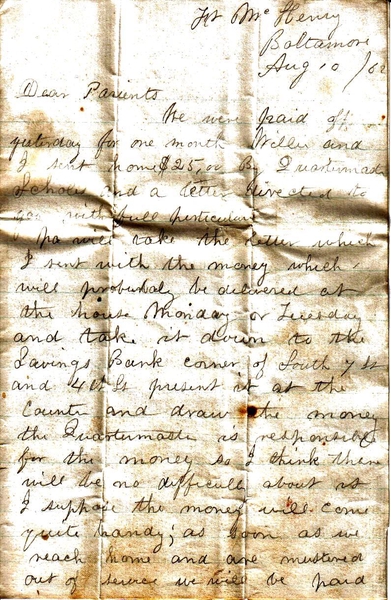 Ft Mc Henry
Baltamore
Aug 10 /62
Dear Parients
We were paid off
yesterday for one month Willie and
I sent home $25,00 by Quartermas
Scholes and a letter directed to
you with full perticulars
pa will take the letter which
I sent with the money which
will probubaly be delivered at
the house Monday or Tuesday
and take it down to the
Savings Bank corner of South 7 St
and 4th St present it at the
Counter and draw the money
the Quartermaster is responsible
for the money so I think there
will be no difficulty about it
I suppose the money will come
quite handy; as soon as we
reach home and are mustered
out of service we will be paid